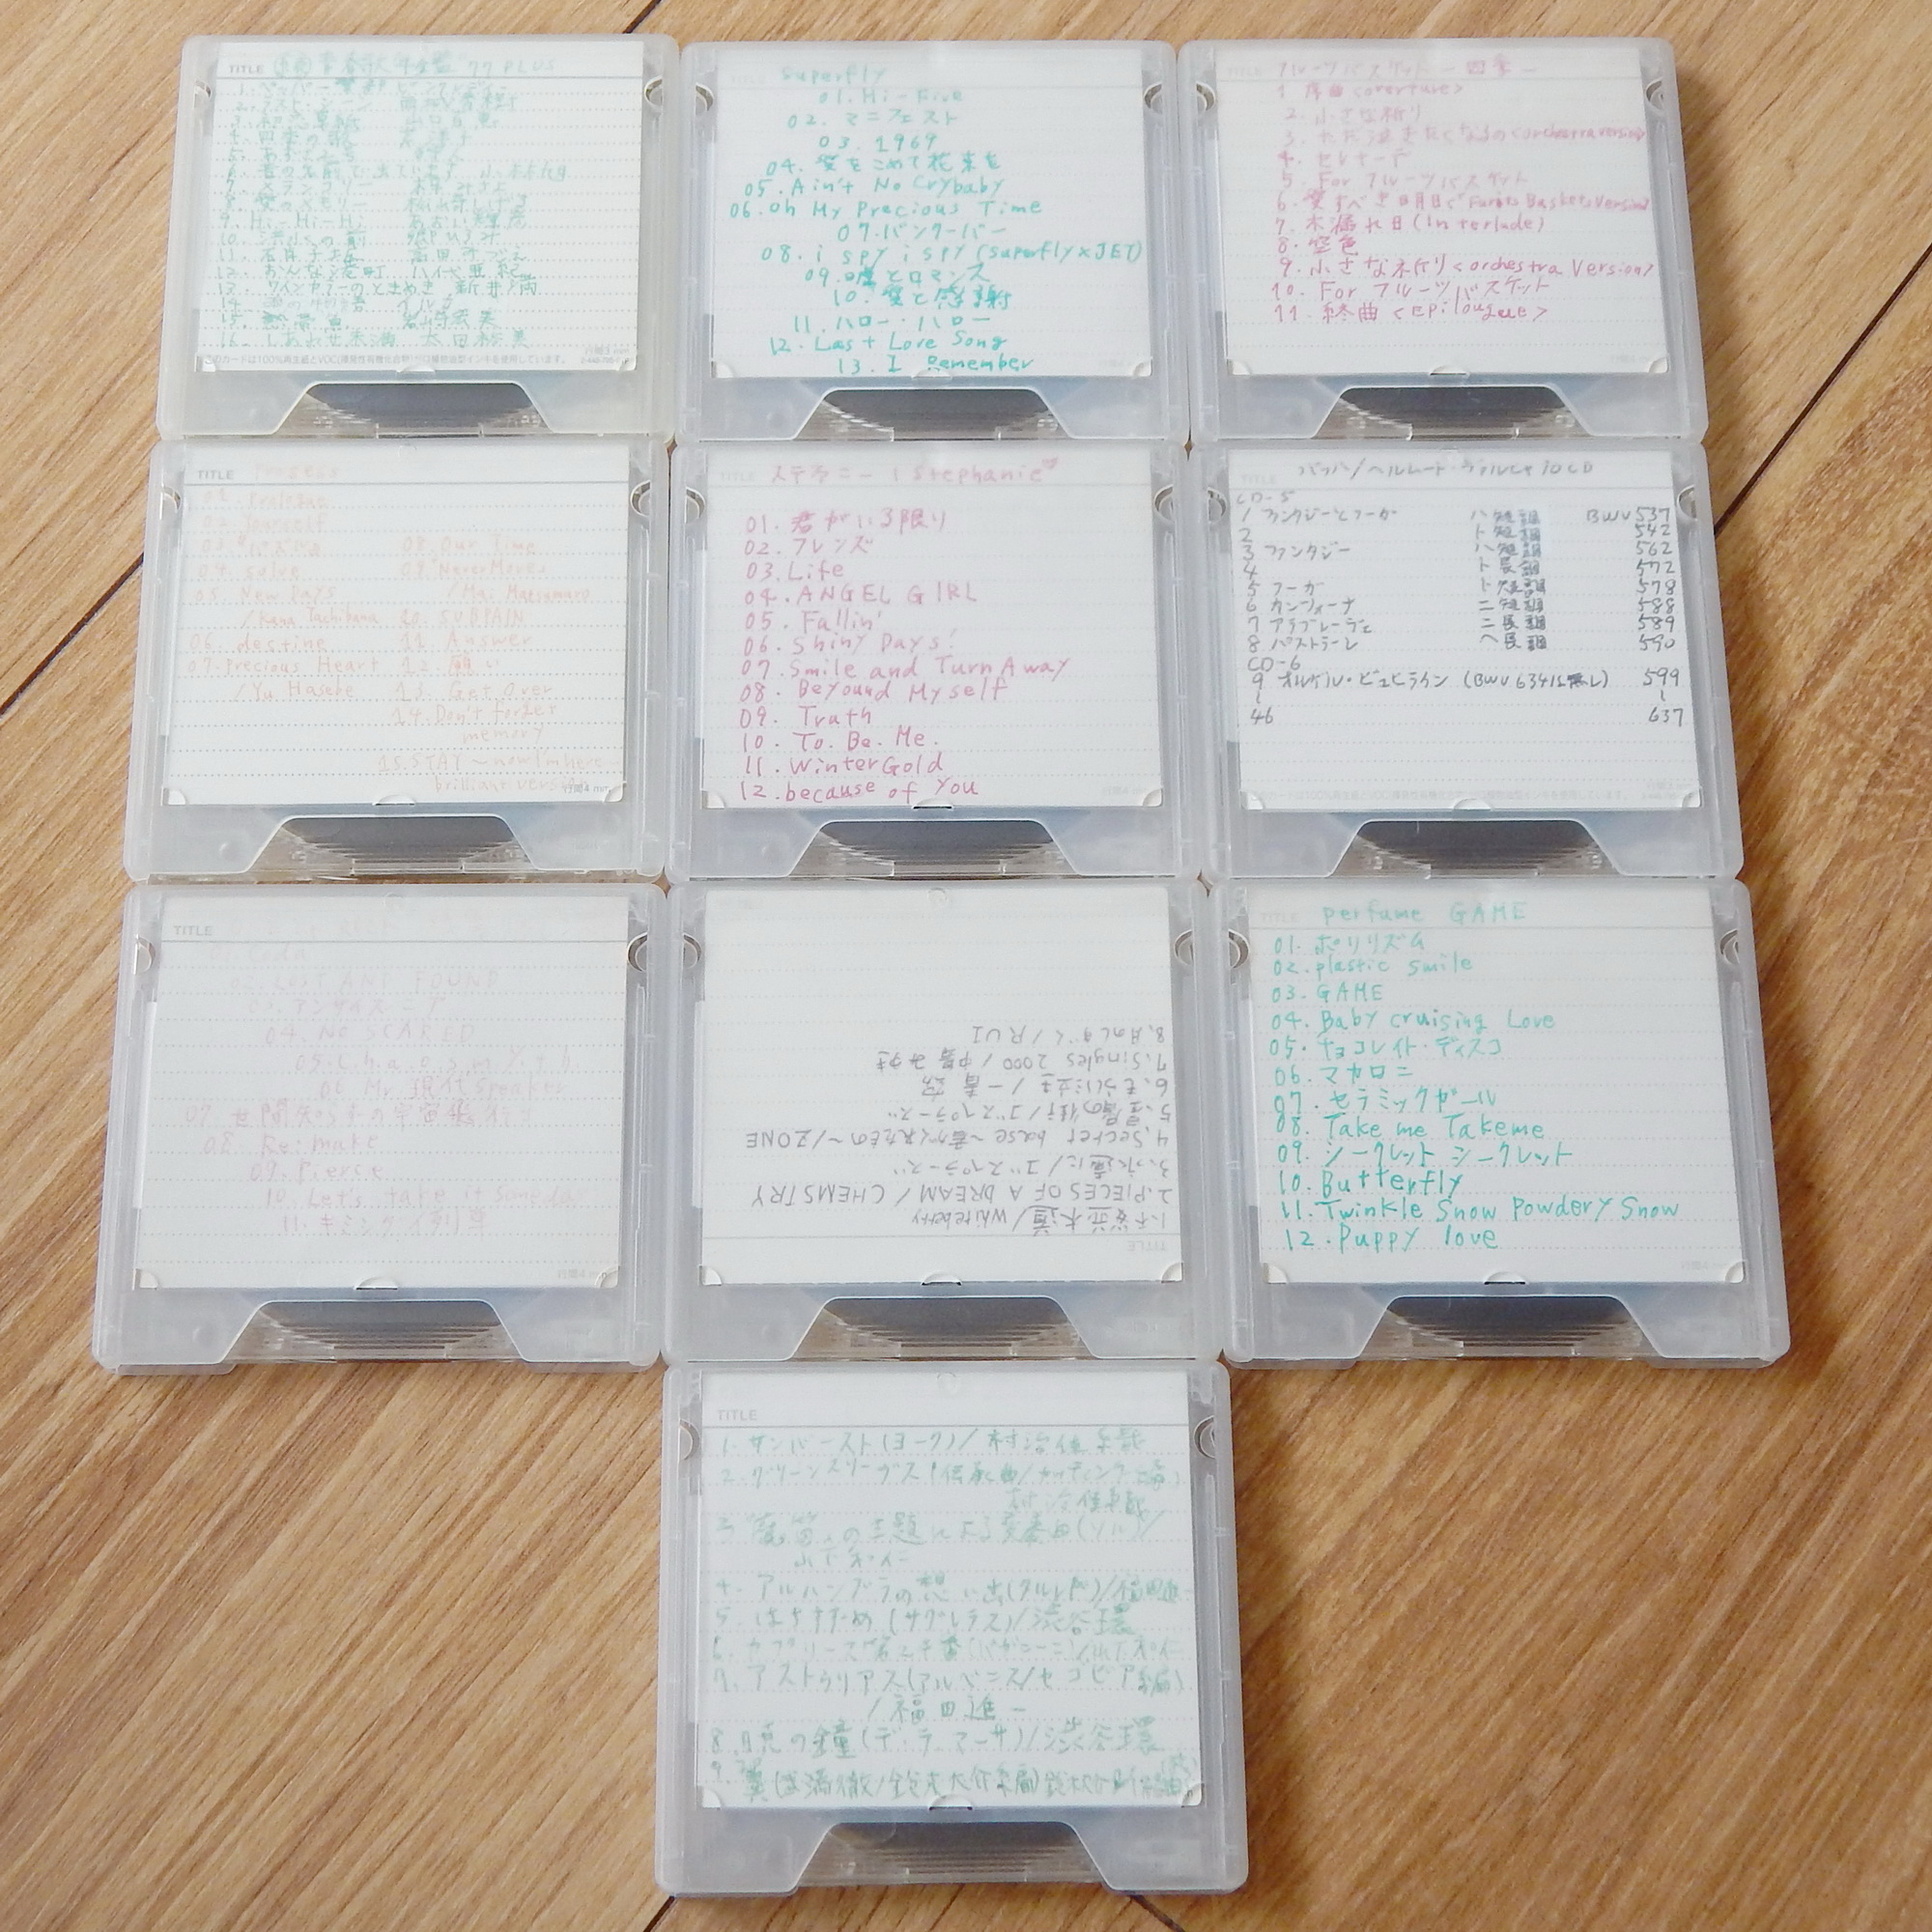 TITLE 青春歌年鑑 '77 PLUS
1. ペッパー警部 ピンクレディー
2. ラスト・シーン 西城秀樹
3. 初恋草紙 山口百恵
4. 四季の歌 芹洋子
6. 昔の名前で出ています 小林旭
7. メランコリー 梓みちよ
8. 愛のメモリー 松崎しげる
9. Hi-Hi-Hi あおい輝彦
10.
11. 高田みづえ
12. おんな港町 八代亜紀
13. ワインカラーのときめき 新井満
14. イルカ
15. 熱帯魚 岩崎宏美
16. しあわせ未満 太田裕美
このカードは100%再生紙とVOC(揮発性有機化合物)ゼロ植物油型インキを使用しています。
行間3mm
superfly
01. Hi-Five
02. マニフェスト
03. 1969
04. 愛をこめて花束を
05. Ain't No Crybaby
06. Oh My Precious Time
07. バンクーバー
08. i spy i spy (Superfly×JET)
09. 嘘とロマンス
10. 愛と感謝
11. ハロー・ハロー
12. Last Love Song
13. I Remember
TITLE フルーツバスケット 四季
1 序曲<overture>
2. 小さな祈り
3. ただ泣きたくなるの<orchestra version>
4. セレナーデ
5. For フルーツバスケット
6. 愛すべき日月日々
7. 木漏れ日 (Interlude)
8. 空色
9. 小さな祈り<orchestra Version>
10. For フルーツバスケット
11. 終曲 <Epilougue>
TITLE Process
01. Prologue
02. Yourself
03.
04. solve
05. New Days
/Kana Tachibana
06. destine
07. Precious Heart
/Yu Hasebe
08. Our Time
09. Never Moves
/Mai Matsumuro
10. SUBPAIN
11. Answer
12. 願い
13. Get Over
14. Don't forget
memory
15. STAY ~now I'm here~
brilliant version
行間4mm
TITLE ステファニー Stephanie
01. 君がいる限り
02. フレンズ
03. Life
04. ANGEL GIRL
05. Fallin'
06. Shiny Days!
07. Smile and Turn Away
08. Beyound Myself
09. Truth
10. To. Be. Me.
11. Winter Gold
12. because of You
バッハ/ヘルムート・ヴァルヒャ 10CD
CD-5
1 ファンタジーとフーガ ハ短調 BWV 537
2 ト短調 542
3 ファンタジー ハ短調 562
4 ト長調 572
5 フーガ ト短調 578
6 カンツォーナ ニ短調 588
7 アラブレーヴェ ニ長調 589
8 パストラーレ ヘ長調 590
CD-6
9 オルゲル・ビュヒライン (BWV 634は無し) 599
~
46 637
TITLE
01. Coda
02. LOST AND FOUND
03. アンサイズニア
04. NO SCARED
05. C.h.a.o.s.m.y.t.h.
06. Mr. 現代Speaker
07. 世間知らずの宇宙飛行士
08. Re:make
09. Pierce
10. Let's take it someday
11. キミシダイ列車
行間4mm
TITLE
1. 不若並木道/Whiteberry
2. PIECES OF A DREAM / CHEMSTRY
3. 永遠に/ゴスペラーズ
4. Secret base ~君がくれたもの~/ZONE
5. 星屑の街/ゴスペラーズ
6. もらい泣き / 一青窈
7. Singles 2000 / 中島みゆき
8. 月のしずく/RUI
TITLE perfume GAME
01. ポリリズム
02. plastic smile
03. GAME
04. Baby cruising Love
05. チョコレイト・ディスコ
06. マカロニ
07. セラミックガール
08. Take me Takeme
09. シークレット シークレット
10. Butterfly
11. Twinkle Snow Powdery Snow
12. Puppy love
行間4mm
TITLE
1. サンバースト(ヨーク)/村治佳織
2. グリーンスリーブス(伝承曲/カッティング編)
村治佳織
3. 魔笛の主題による変奏曲(ソル)/
山下和仁
4. アルハンブラの想い出(タルレガ)/福田進一
5. はちすずめ(サグレラス)/渋谷環
6. カプリース第24番(パガニーニ)/山下和仁
7. アストゥリアス(アルベニス/セゴビア編)
/福田進一
8. 暁の鐘(デ・ラ・マーサ)/渋谷環
9. 翼(武満徹/鈴木大介編)